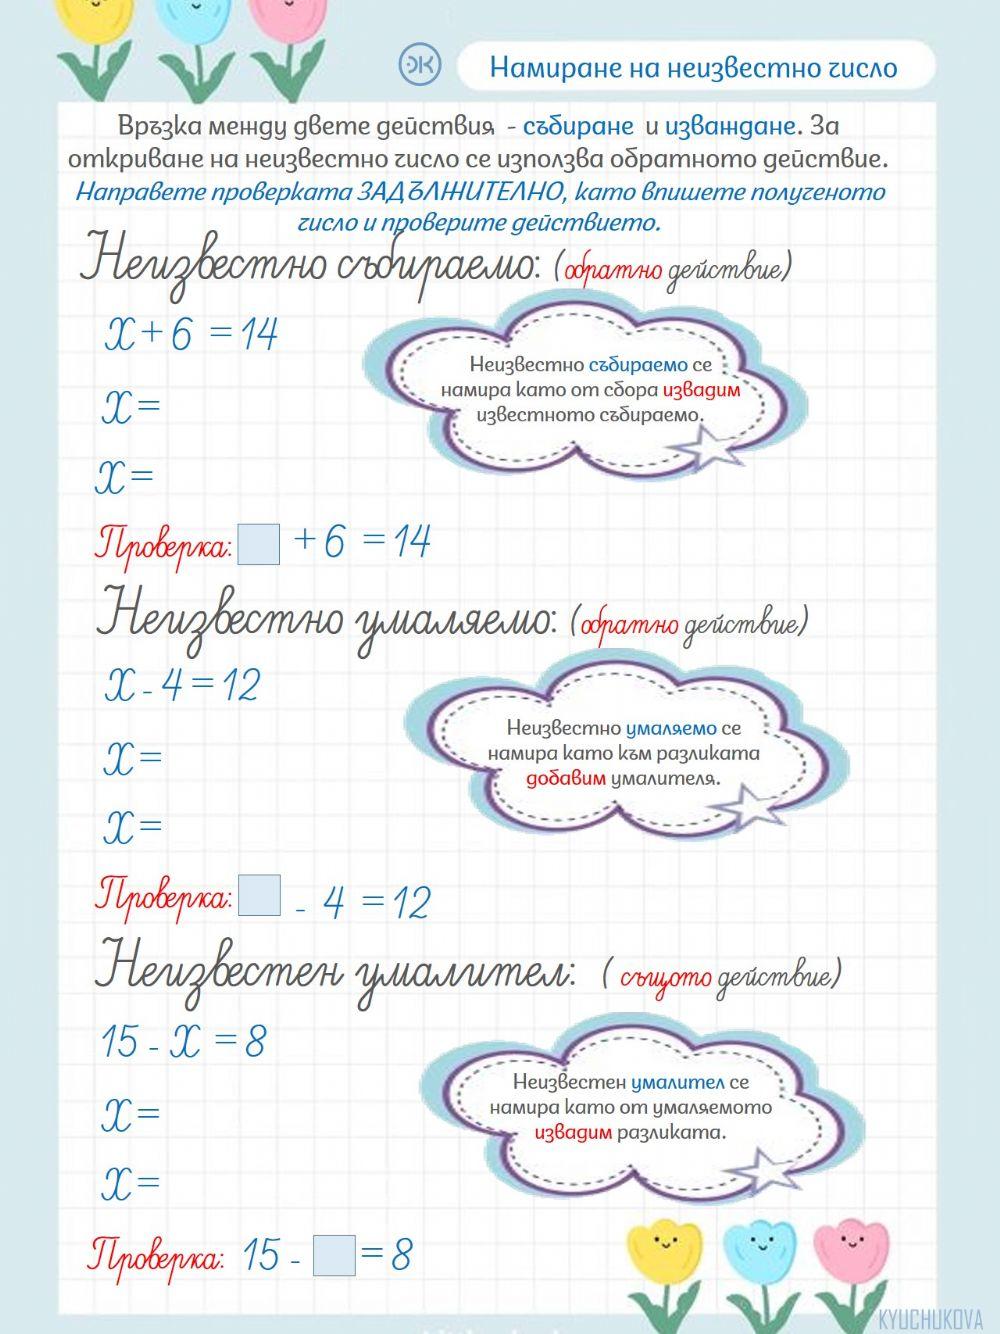 Намиране на неизвестно число
Връзка между двете действия - събиране и изваждане. За
откриване на неизвестно число се използва обратното действие.
Направете проверката ЗАДЪЛЖИТЕЛНО, като впишете полученото
число и проверите действието.
Неизвестно събираемо: (обратно действие)
X + 6 = 14
Неизвестно събираемо се
намира като от сбора извадим
известното събираемо.
X =
X =
Проверка: + 6 = 14
Неизвестно умаляемо: (обратно действие)
X - 4 = 12
Неизвестно умаляемо се
намира като към разликата
добавим умалителя.
X =
X =
Проверка: - 4 = 12
Неизвестен умалител: ( същото действие)
15 - X = 8
Неизвестен умалител се
намира като от умаляемото
извадим разликата.
X =
X =
Проверка: 15 - = 8
KYUCHUKOVA